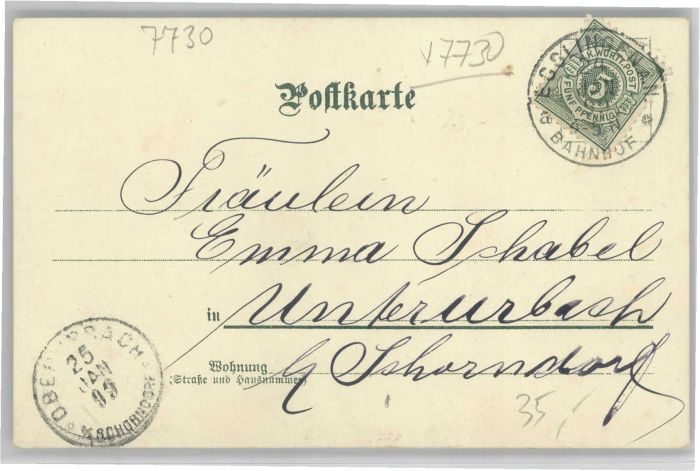 7730
√7730
Postkarte
K. WÜRTT. POST
FÜNF PFENNIG
5
BAHNHOF
Fräulein
Emma Schabel
in Unterurbach
b/ Schorndorf
Wohnung
(Straße und Hausnummer)
35,-
25
JAN
99
SCHORNDORF